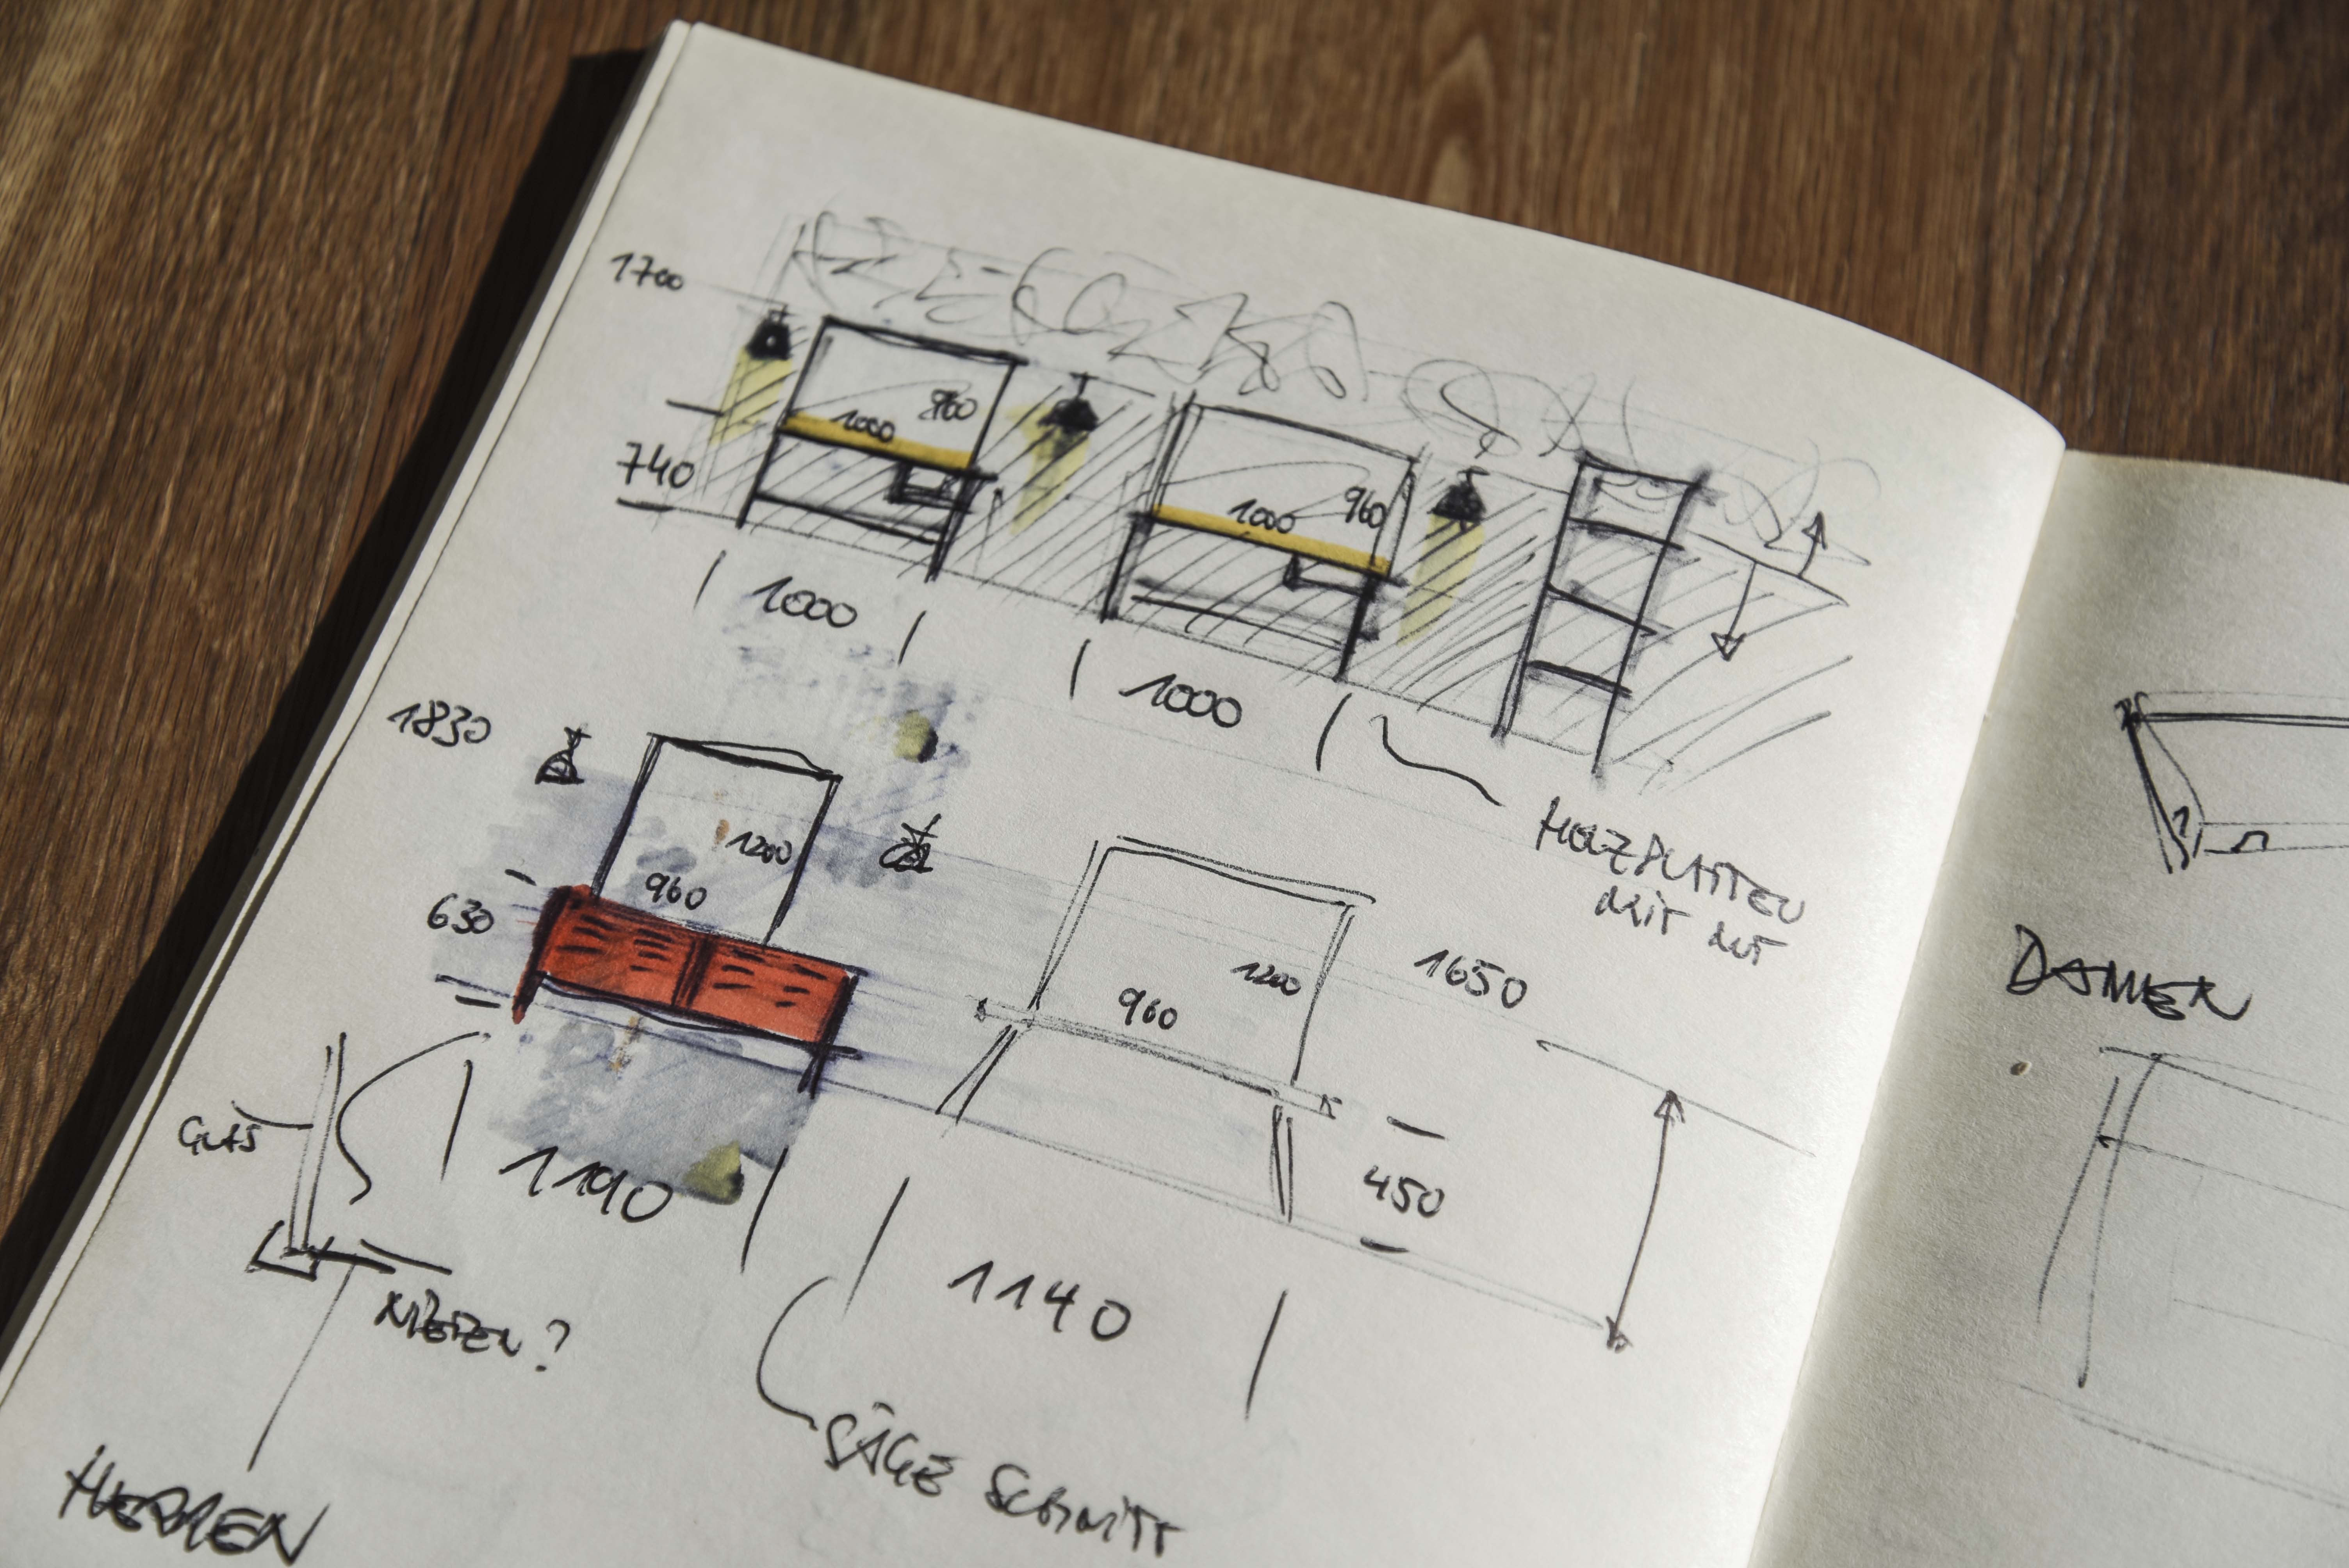 1700
960
1000
740
1000
960
1000
1000
HOLZPLATTEN
MIT NUT
1830
1200
960
630
1190
960
1200
1650
450
1140
GLAS
NIETEN?
SÄGE SCHNITT
HERREN
DAMEN